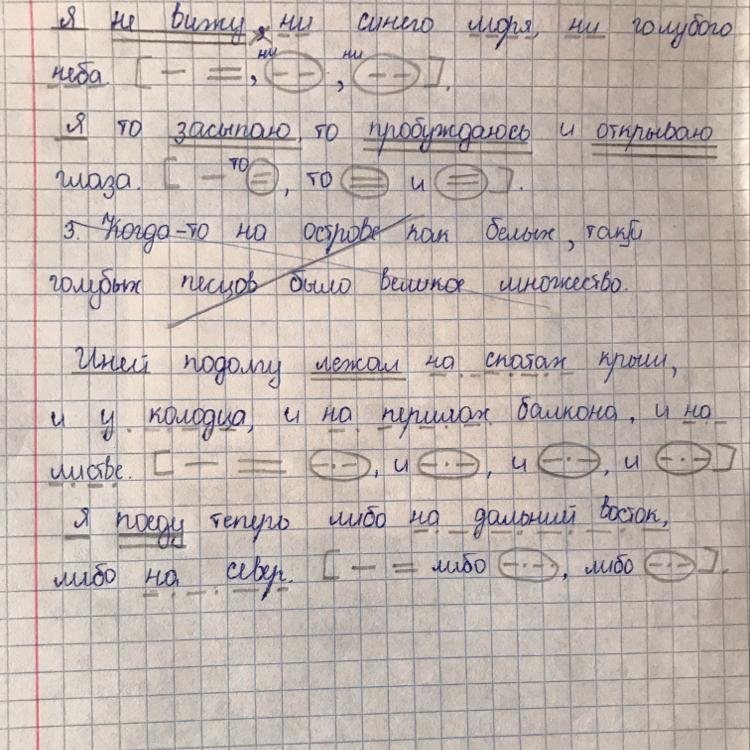 Я не вижу, ни синего моря, ни голубого
неба. [— =, ни (— —), ни (— —)].
Я то засыпаю, то пробуждаюсь и открываю
глаза. [— то (=), то (=) и (=)].
3. Когда-то на острове как белых, так и
голубых песцов было великое множество.
Иней подолгу лежал на скатах крыш,
и у колодца, и на перилах балкона, и на
листве. [— = (—·—), и (—·—), и (—·—), и (—·—)]
Я поеду теперь либо на дальний восток,
либо на север. [— = либо (—·—), либо (—·—)].